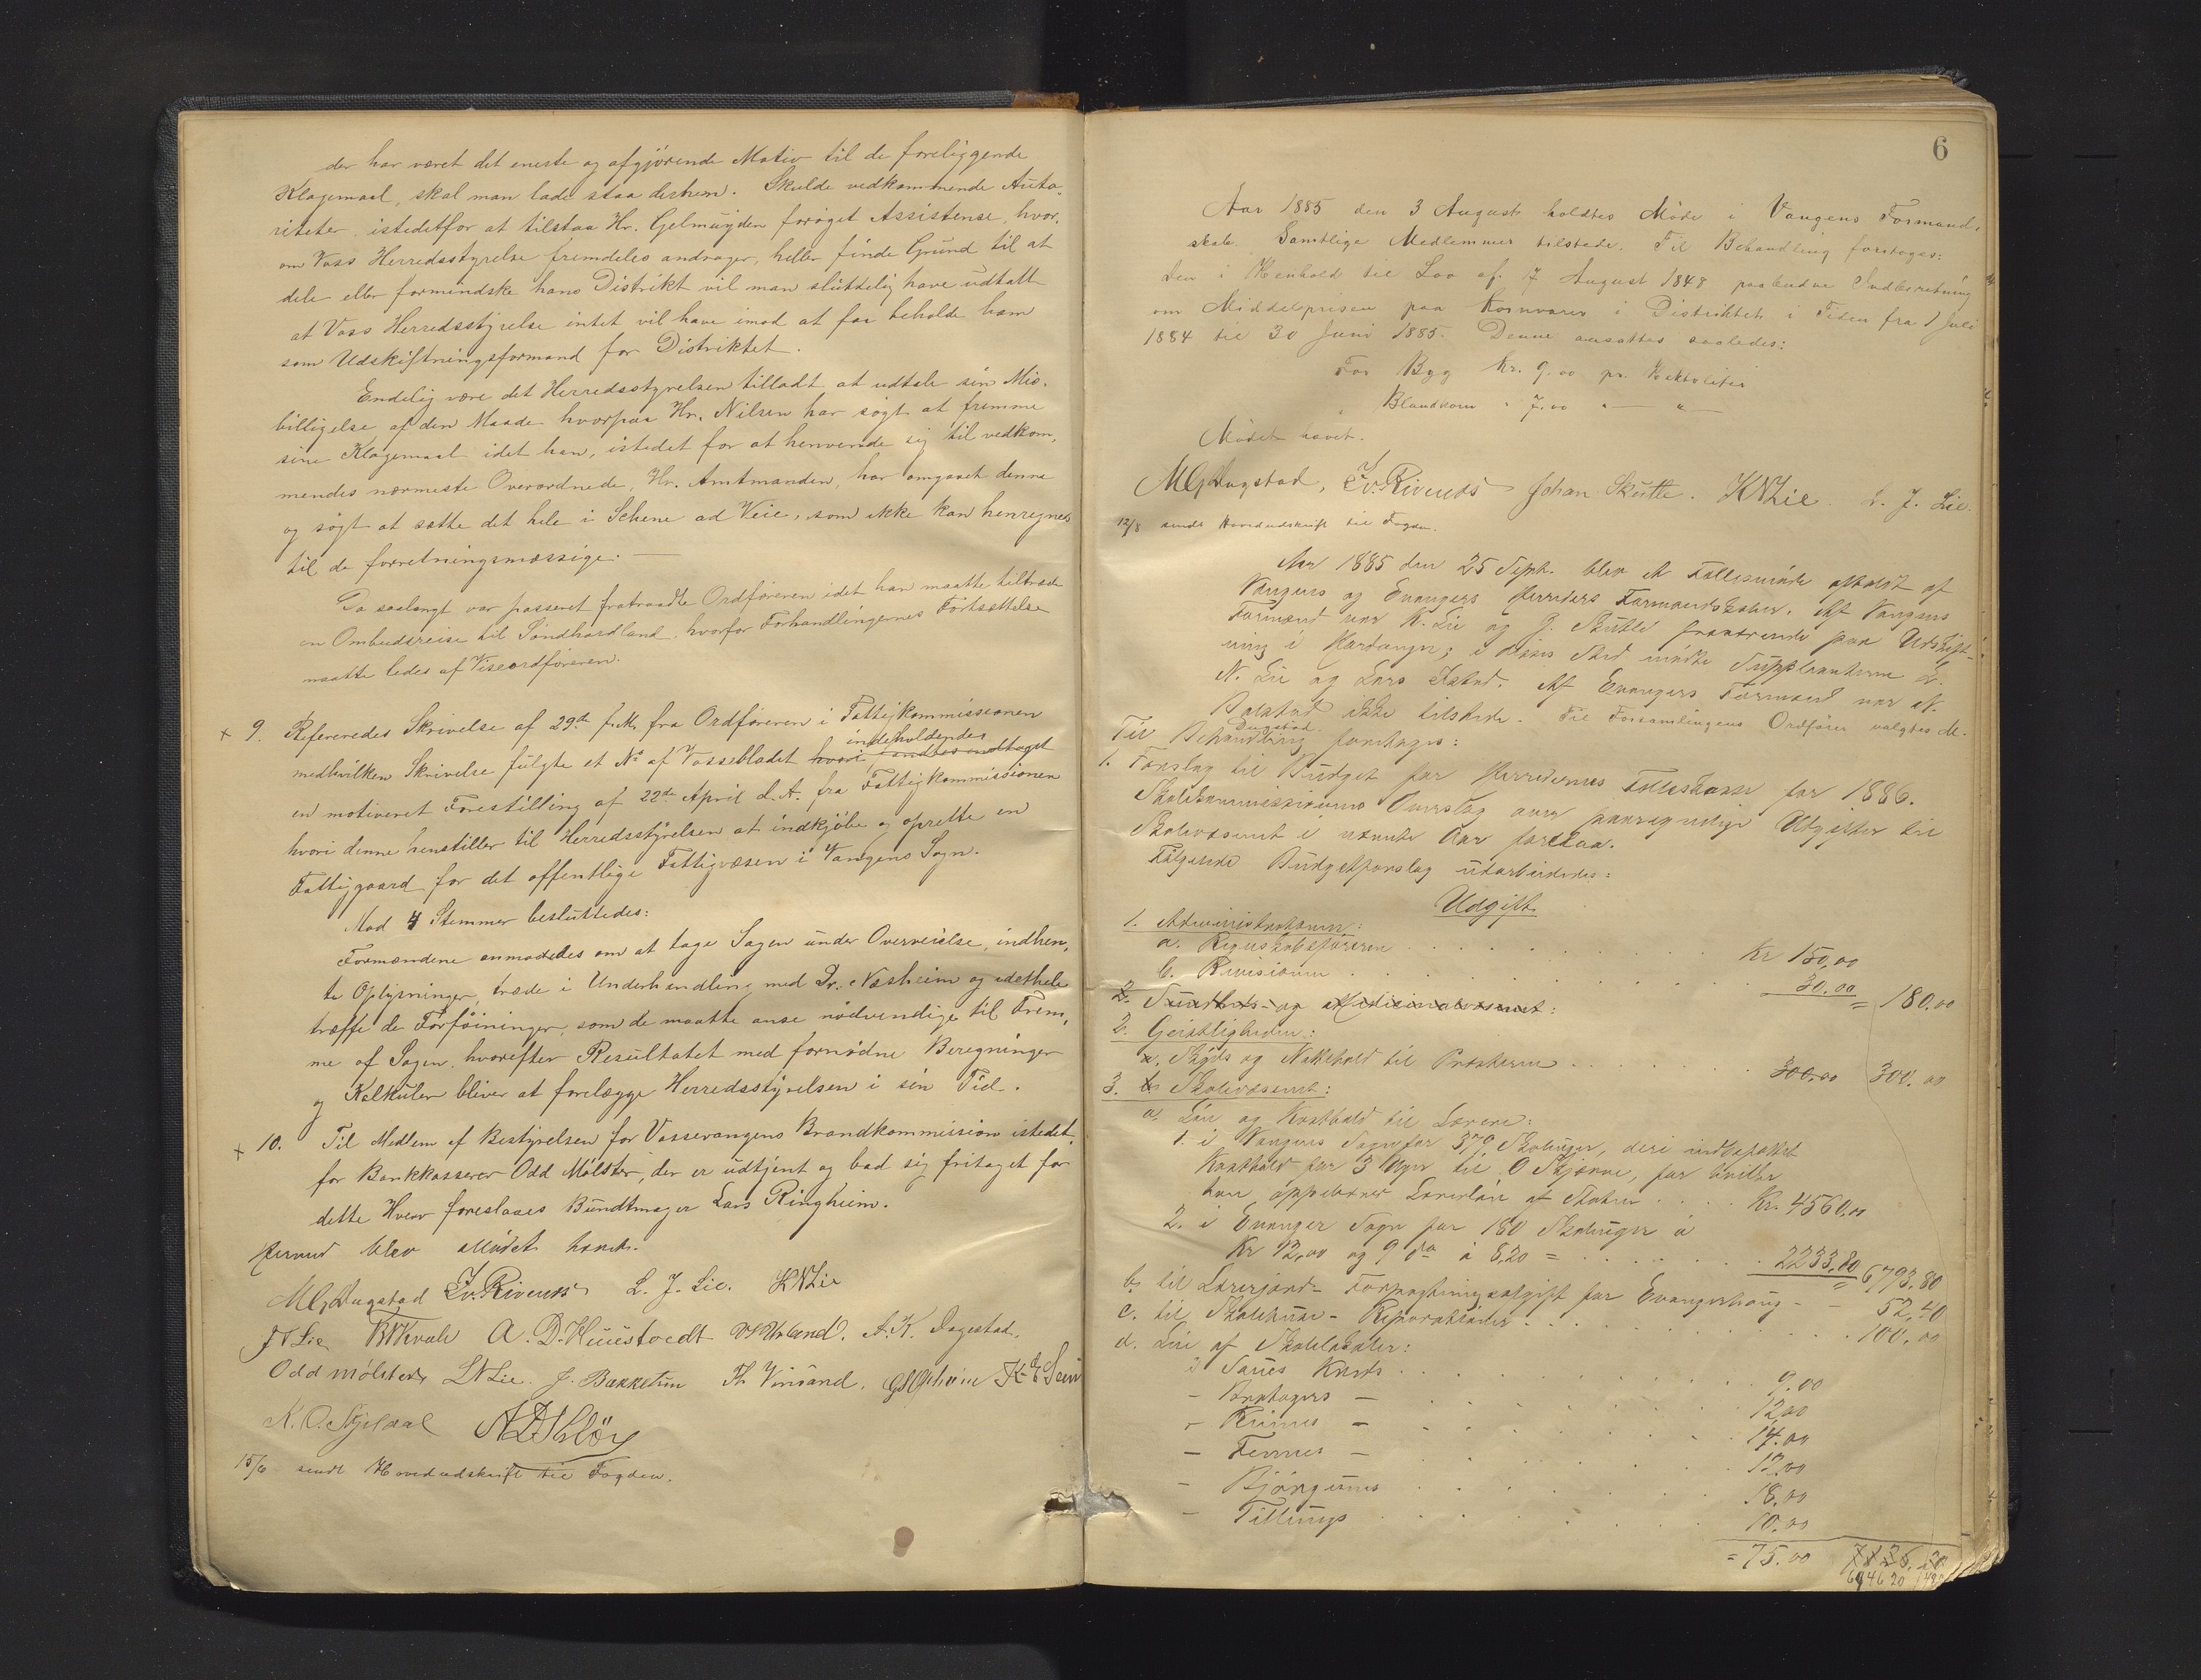 der har været det eneste og afgjörende Motiv til de foreliggende
Klagemaal, skal man lade staa derhen. Skulde vedkommende Auto-
riteter, istedetfor at tilstaa Hr. Gelmuyden foröget Assistense, hvor,
om Voss Herredsstyrelse fremdeles andrager, heller finde Grund til at
dele eller formindske hans Distrikt vil man sluttelig have udtalt
at Voss Herredsstyrelse intet vil have imod at faa beholde ham
som Udskiftningsformand for Distriktet.
Endelig være det Herredsstyrelsen tilladt at udtale sin Mis-
billigelse af den Maade hvorpaa Hr. Nilsen har sögt at fremme
sine Klagemaal idet han, istedet for at henvende sig til vedkom,
mendes nærmeste Overordnede, Hr. Amtmanden, har omgaaet denne
og sögt at sætte det hele i Schene ad Veie, som ikke kan henregnes
til de forretningsmæssige. —
Da saalangt var passeret fratraadte Ordföreren idet han maatte tiltræde
en Ombudsreise til Söndhordland, hvorfor Forhandlingernes Fortsættelse
maatte ledes af Viseordföreren.
+ 9. Refereredes Skrivelse af 29de f. M. fra Ordföreren i Fattigkommissionen
indeholdendes
medhvilken Skrivelse fulgte et No af Vossebladet hvori fandtes indtaget
en motiveret Forestilling af 22de April d. A. fra Fattigkommissionen
hvori denne henstiller til Herredsstyrelsen at indkjöbe og oprette en
Fattiggaard for det offentlige Fattigvæsen i Vangens Sogn.
Mod 4 Stemmer besluttedes:
Formændene anmodedes om at tage Sagen under Overveielse, indhen,
te Oplysninger, træde i Underhandling med Dr. Næsheim og idethele
træffe de Forföininger, som de maatte anse nödvendige til Frem,
me af Sagen, hvorefter Resultatet med fornödne Beregninger
og Kalkuler bliver at forelægge Herredsstyrelsen i sin Tid.
+ 10. Til Medlem af Bestyrelsen for Vossevangens Brandkommission istedet,
for Bankkasserer Odd Mölster, der er udtjent og bad sig fritaget for
dette Hverv foreslaaes Bundtmager Lars Ringheim.
Hermed blev Mödet hævet.
M G Dugstad Iv. Rivenes L. J. Lie. K N Lie
N Lie A. K. Dagestad.
Odd Mölster L N Lie. J. Bakketun Th Vinsand.
K. O. Gjeldal
15/6 sendt Hovedudskrift til Fogden.
6
Aar 1885 den 3 August holdtes Möde i Vangens Formand,
skab. Samtlige Medlemmer tilstede. Til Behandling foretoges:
den i Henhold til Lov af 17 August 1848 paabudne Indberetning
om Middelprisen paa Kornvarer i Distriktet i Tiden fra 1 Juli
1884 til 30 Juni 1885. Denne ansattes saaledes:
For Byg Kr. 9.00 pr. Hektoliter
" Blandkorn " 7.00 " — " —
Mödet hævet.
M G Dugstad, Iv. Rivenes Johan Skutle. K N Lie. L. J. Lie.
12/8 sendt Hovedudskrift til Fogden.
Aar 1885 den 25 Septb. blev et Fællesmöde afholdt af
Vangens og Evangers Herreders Formandskaber. Af Vangens
Formænd var K. Lie og J. Skutle fraværende paa Udskift-
ning i Hardanger; i disses Sted mödte Suppleanterne L.
N. Lie og Lars . Af Evangers Formænd var N.
ikke tilstede. Til Forsamlingens Ordförer valgtes M.
Dugstad.
Til Behandling foretoges:
1. Forslag til Budget for Herredernes Felleskasse for 1886.
Skolekommissionens Overslag over paaregnelige Udgifter til
Skolevæsenet i nævnte Aar forelaa.
Fölgende Budgetforslag udarbeidedes:
Udgift
1. Administrationen:
a. Regnskabsföreren . . . Kr 150,00
b. Revisionen . . . 30.00 = 180.00
2. Sundheds- og Medicinalvæsenet:
2. Geistligheden:
a. Skyds og Nattehold til Præsterne . . . 300,00 300.00
3. b Skolevæsenet:
a. Lön og Kosthold til Lærere:
1. i Vangens Sogn for 379 Skoleuger, deri indbefattet
Kosthold for 3 Uger til O Skjerve, for hvilke
han oppebærer Lærerlön af Staten . . . Kr. 4560,00
2. i Evanger Sogn for 180 Skoleuger á
Kr 12,00 og 9 do á 8,20 = . . . 2233,80 = 6793,80
b. til Lærerjord- Forpagtningsafgift for Evangerhaug - - 52,40
c. til Skolehuse- Reparationer . . . 100.00
d. Leie af Skolelokaler:
i Saues Kreds . . . 9.00
- — . . . 12,00
- Rimes — . . . 14.00
- Fennes — . . . 12,00
- Björgums . . . 18.00
- Tillungs . . . 10.00
= 75.00